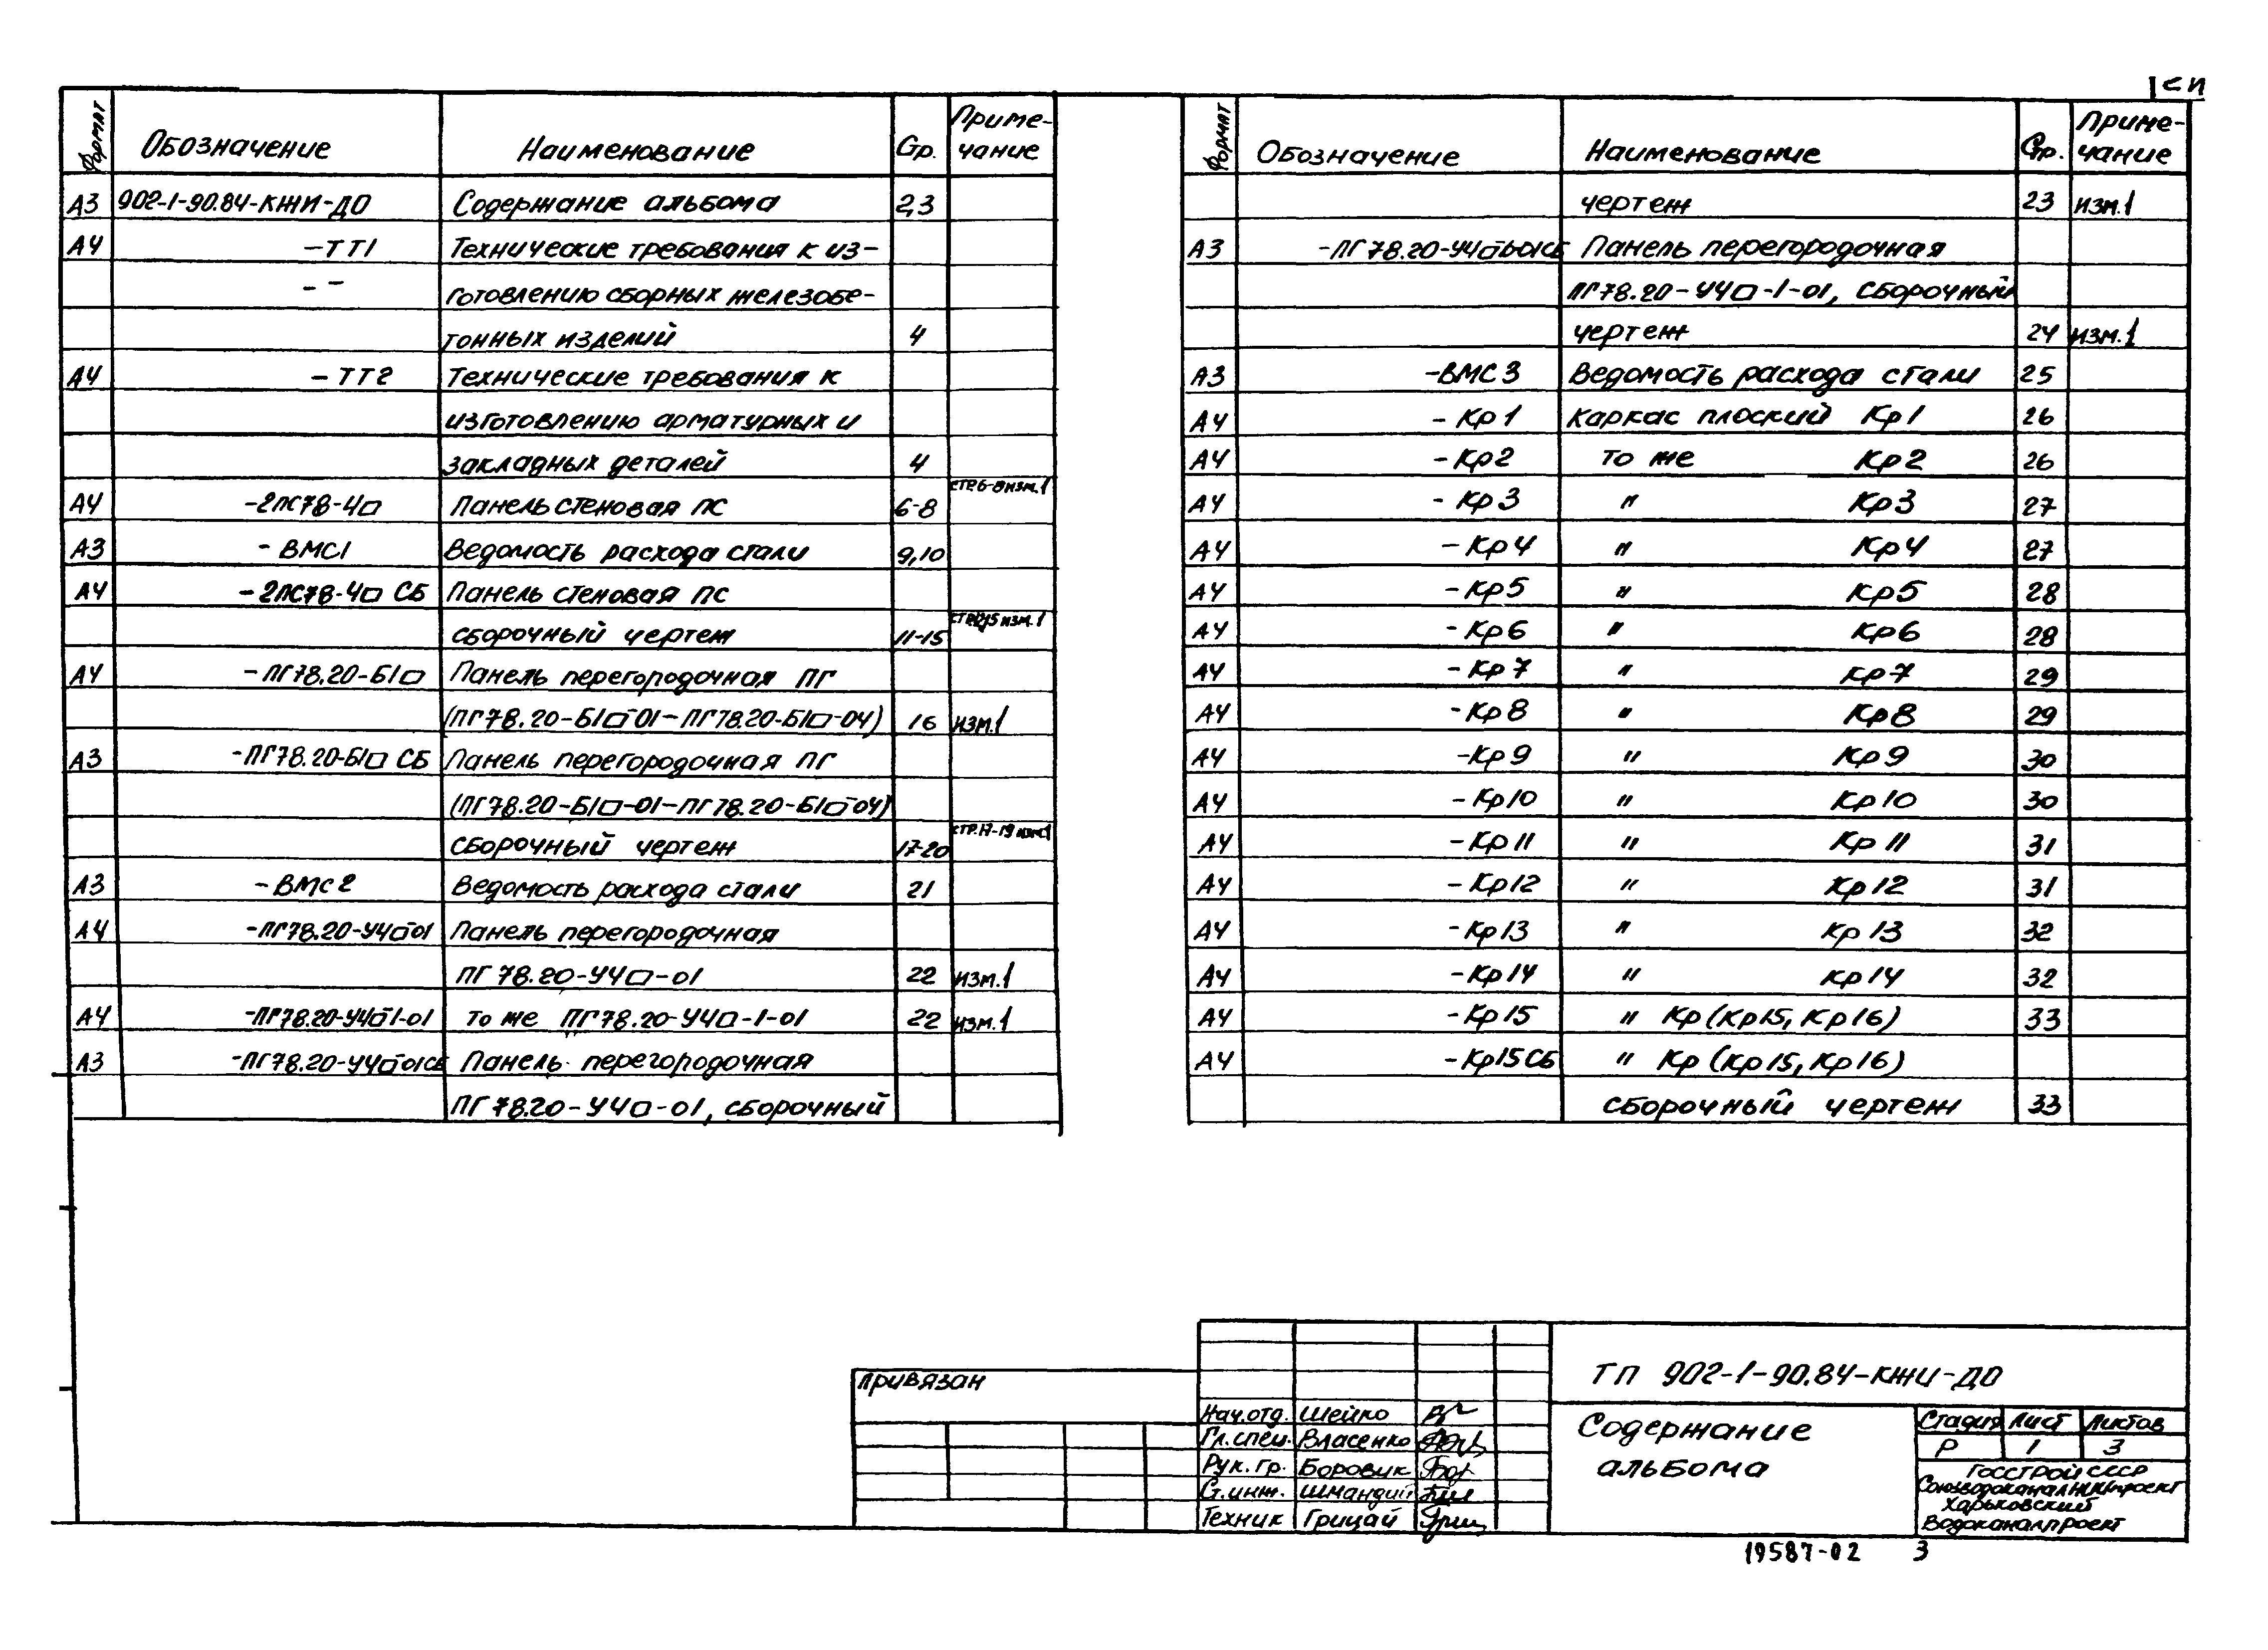 Формат Обозначение Наименование Стр. Приме-чание
А3 902-1-90.84-КЖИ-ДО Содержание альбома 2,3
А4 -ТТ1 Технические требования к из-
- - готовлению сборных железобе-
тонных изделий 4
А4 -ТТ2 Технические требования к
изготовлению арматурных и
закладных деталей 4
А4 -2ПС78-4□ Панель стеновая ПС 6-8 стр.6-8 изм.1
А3 -ВМС1 Ведомость расхода стали 9,10
А4 -2ПС78-4□ СБ Панель стеновая ПС
сборочный чертеж 11-15 изм.1
А4 -ПГ78.20-Б1□ Панель перегородочная ПГ
(ПГ78.20-Б1□-01-ПГ78.20-Б1□-04) 16 изм.1
А3 -ПГ78.20-Б1□ СБ Панель перегородочная ПГ
(ПГ78.20-Б1□-01-ПГ78.20-Б1□-04)
сборочный чертеж 17-20 стр.17-19 изм.1
А3 -ВМС2 Ведомость расхода стали 21
А4 -ПГ78.20-У4□-01 Панель перегородочная
ПГ78.20-У4□-01 22 изм.1
А4 -ПГ78.20-У4□-1-01 то же ПГ78.20-У4□-1-01 22 изм.1
А3 -ПГ78.20-У4□-01СБ Панель перегородочная
ПГ78.20-У4□-01, сборочный
Формат Обозначение Наименование Стр. Приме-чание
чертеж 23 изм.1
А3 Панель перегородочная
ПГ78.20-У4□-1-01, сборочный
чертеж 24 изм.1
А3 -ВМС3 Ведомость расхода стали 25
А4 -Кр1 Каркас плоский Кр1 26
А4 -Кр2 то же Кр2 26
А4 -Кр3 " Кр3 27
А4 -Кр4 " Кр4 27
А4 -Кр5 " Кр5 28
А4 -Кр6 " Кр6 28
А4 -Кр7 " Кр7 29
А4 -Кр8 " Кр8 29
А4 -Кр9 " Кр9 30
А4 -Кр10 " Кр10 30
А4 -Кр11 " Кр11 31
А4 -Кр12 " Кр12 31
А4 -Кр13 " Кр13 32
А4 -Кр14 " Кр14 32
А4 -Кр15 " Кр(Кр15, Кр16) 33
А4 -Кр15СБ " Кр(Кр15, Кр16)
сборочный чертеж 33
Привязан
Нач.отд. Шейко
Гл.спец. Власенко
Рук.гр. Боровик
Ст.инж. Шмандий
Техник Грицай
ТП 902-1-90.84-КЖИ-ДО
Содержание
альбома
Стадия Лист Листов
Р 1 3
Госстрой СССР
СоюзводоканалНИИпроект
Харьковский
Водоканалпроект
19587-02 3